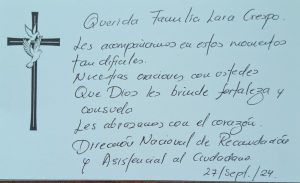 Querida Familia Lara Crespo.
Les acompañamos en estos momentos
tan difíciles.
Nuestras oraciones con ustedes
Que Dios les brinde fortaleza y
consuelo
Les abrazamos con el corazón.
Dirección Nacional de Recaudación
y Asistencial al Ciudadano
27/Sept./24.